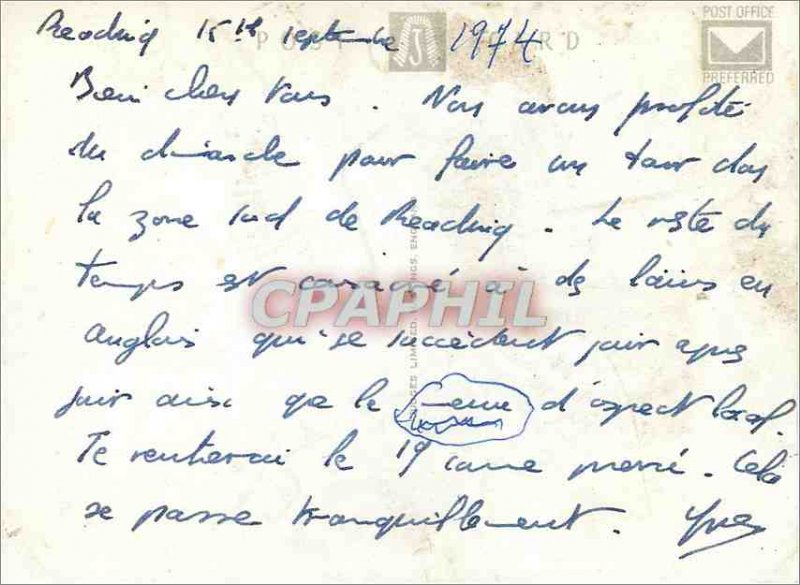 Reading 15th septembre 1974
POST CARD
POST OFFICE
PREFERRED
Bien chers tous. Nous avons profité
du dimanche pour faire un tour dans
la zone sud de Reading. Le reste du
temps est consacré à des leçons en
anglais qui se succèdent jour après
jour ainsi que le d'aspect local.
Je rentrerai le 19 comme prévu. Cela
se passe tranquillement. Yves
CPAPHIL